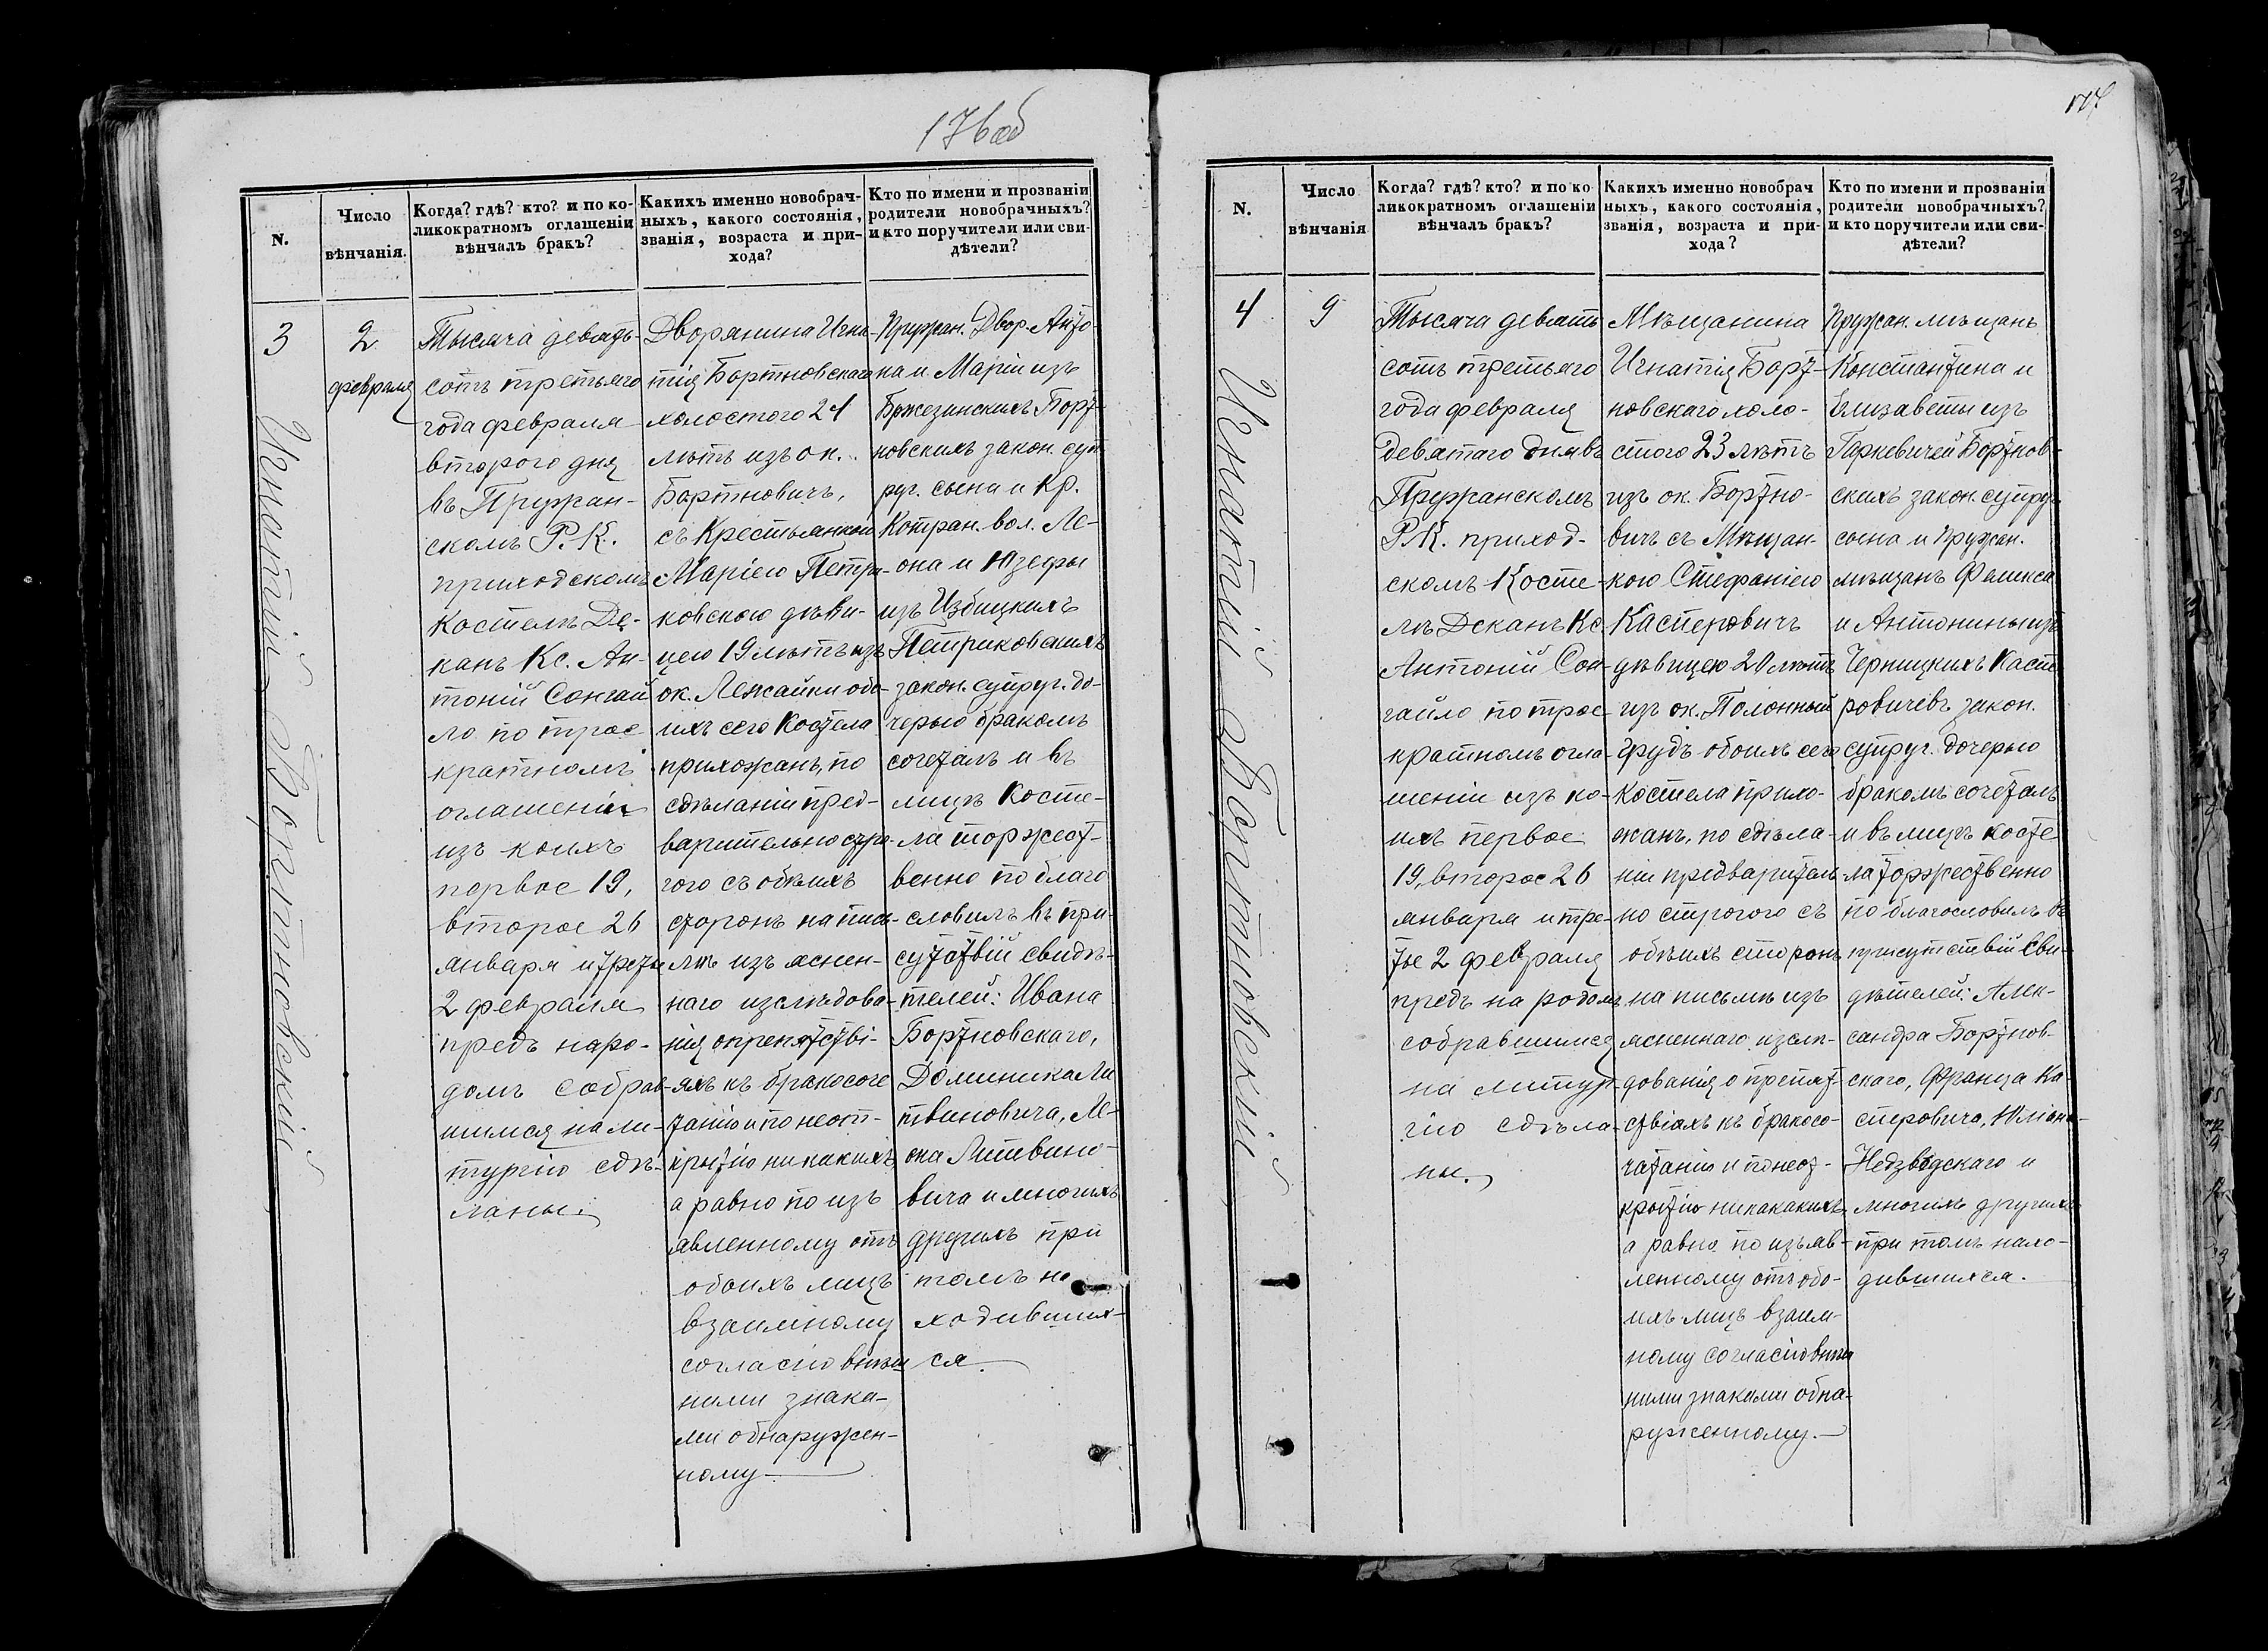 176об
N.
Число
вѣнчанія.
Когда? гдѣ? кто? и по ко-
ликократномъ оглашеніи
вѣнчалъ бракъ?
Каких​ъ именно новобрач-
ныхъ, какого состоянія,
званія, возраста и при-
хода?
Кто по имени и прозваніи
родители новобрачныхъ?
и кто поручители или сви-
дѣтели?
3
Игнатій Бортновскій
2
февраля
Тысяча девять-
сотъ третьяго
года февраля
второго дня
въ Пружан-
скомъ Р. К.
приходскомъ
Костелѣ Де-
канъ Кс. Ан-
тоній Сонгай
ло по трое
кратномъ
оглашеніи
изъ коихъ
первое 19,
второе 26
января и третье
2 февраля
предъ наро-
домъ собрав-
шимся на ли-
тургію сдѣ-
ланы.
Дворянина Игна-
тія Бортновскаго
холостого 21
лѣтъ изъ ок.
Бортновичъ,
съ Крестьянкою
Маріею Петри-
ковскою дѣви-
цею 19 лѣтъ изъ
ок. Лежайки обо-
ихъ сего Костела
прихожанъ, по
сдѣланіи пред-
варительно стро-
гого съ обѣихъ
сторонъ на пись-
мѣ изъ яснен-
наго изслѣдова-
нія опрепятстві-
яхъ къ бракосоче
танію и по неот-
крытію никакихъ
а равно по изъ
явленному отъ
обоихъ лицъ
взаимному
согласію внѣш
ними знака-
ми обнаружен-
ному
Пружан. Двор. Анто-
на и Маріи изъ
Бржезинскихъ Борт-
новскихъ закон. суп
руг. сына и Кр.
Котран. вол. Ле-
она и Юзефы
изъ Избицкихъ
Петриковскихъ
закон. супруг. до-
черью бракомъ
сочеталъ и въ
лицѣ Косте-
ла торжест-
венно по благо
словилъ въ при-
сутствіи свидѣ-
телей: Ивана
Бортновскаго,
Доминика Ли
твиновича, Ле-
она Литвино-
вича и многихъ
другихъ при
томъ на
ходивших-
ся.
177
N.
Число
вѣнчанія
Когда? гдѣ? кто? и по ко
ликократномъ оглашеніи
вѣнчалъ бракъ?
Какихъ именно новобрач
ныхъ, какого состоянія,
званія, возраста и при-
хода?
Кто по имени и прозваніи
родители новобрачныхъ?
и кто поручители или сви-
дѣтели?
4
Игнатій Бортновскій
9
Тысяча девять
сотъ третьяго
года февраля
девятаго дня въ
Пружанскомъ
Р. К. приход-
скомъ Косте-
лѣ Деканъ Кс.
Антоній Сон-
гайло по трое-
кратномъ огла-
шеніи изъ ко-
ихъ первое
19, второе 26
января и тре-
тье 2 февраля
предъ народомъ
собравшимся
на литур-
гію сдѣла-
ны.
Мѣщанина
Игнатія Борт-
новскаго холо-
стого 23 лѣтъ
изъ ок. Бортно-
вичъ съ Мѣщан-
кою Стефаніею
Касперовичъ
дѣвицею 20 лѣтъ
изъ ок. Полонный
Грудъ обоихъ сего
Костела прихо-
жанъ, по сдѣла-
ніи предварител
но строгого съ
обѣихъ сторонъ
на письмѣ изъ
ясненнаго изслѣ-
дованія о препят-
ствіяхъ къ бракосо-
чатанію и по неот-
крытію никакакихъ
а равно по изъяв-
ленному отъ обо-
ихъ лицъ взаим-
ному согласію внѣш
ними знаками обна-
руженному.
Пружан. мѣщанъ
Константина и
Елизаветы изъ
Гаркевичей Бортнов-
скихъ закон. супруг
сына и Пружан.
мѣщанъ Феликса
и Антонины изъ
Черницкихъ Каспе
ровичевъ закон.
супруг. дочерью
бракомъ сочеталъ
и въ лицѣ Косте
ла торжественно
по благословилъ въ
присутствіи Сви-
дѣтелей: Алек-
сандра Бортнов-
скаго, Франца Ка-
сперовича, Юліана
Недзведскаго и
многихъ другихъ
при томъ нахо-
дившихся.